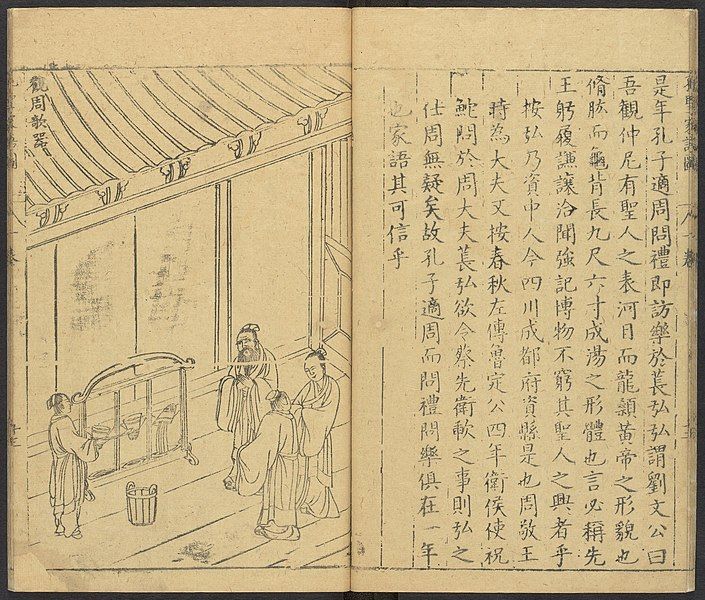 是年孔子適周問禮即訪樂於萇弘弘謂劉文公曰
吾觀仲尼有聖人之表河目而龍顙黃帝之形貌也
脩肱而龜背長九尺六寸成湯之形體也言必稱先
王躬履謙讓洽聞強記博物不窮其聖人之興者乎
按弘乃資中人今四川成都府資縣是也周敬王
時為大夫又按春秋左傳魯定公四年衛侯使祝
鮀問於周大夫萇弘欲令蔡先衛歃之事則弘之
仕周無疑矣故孔子適周而問禮問樂俱在一年
也家語其可信乎
觀周欹器